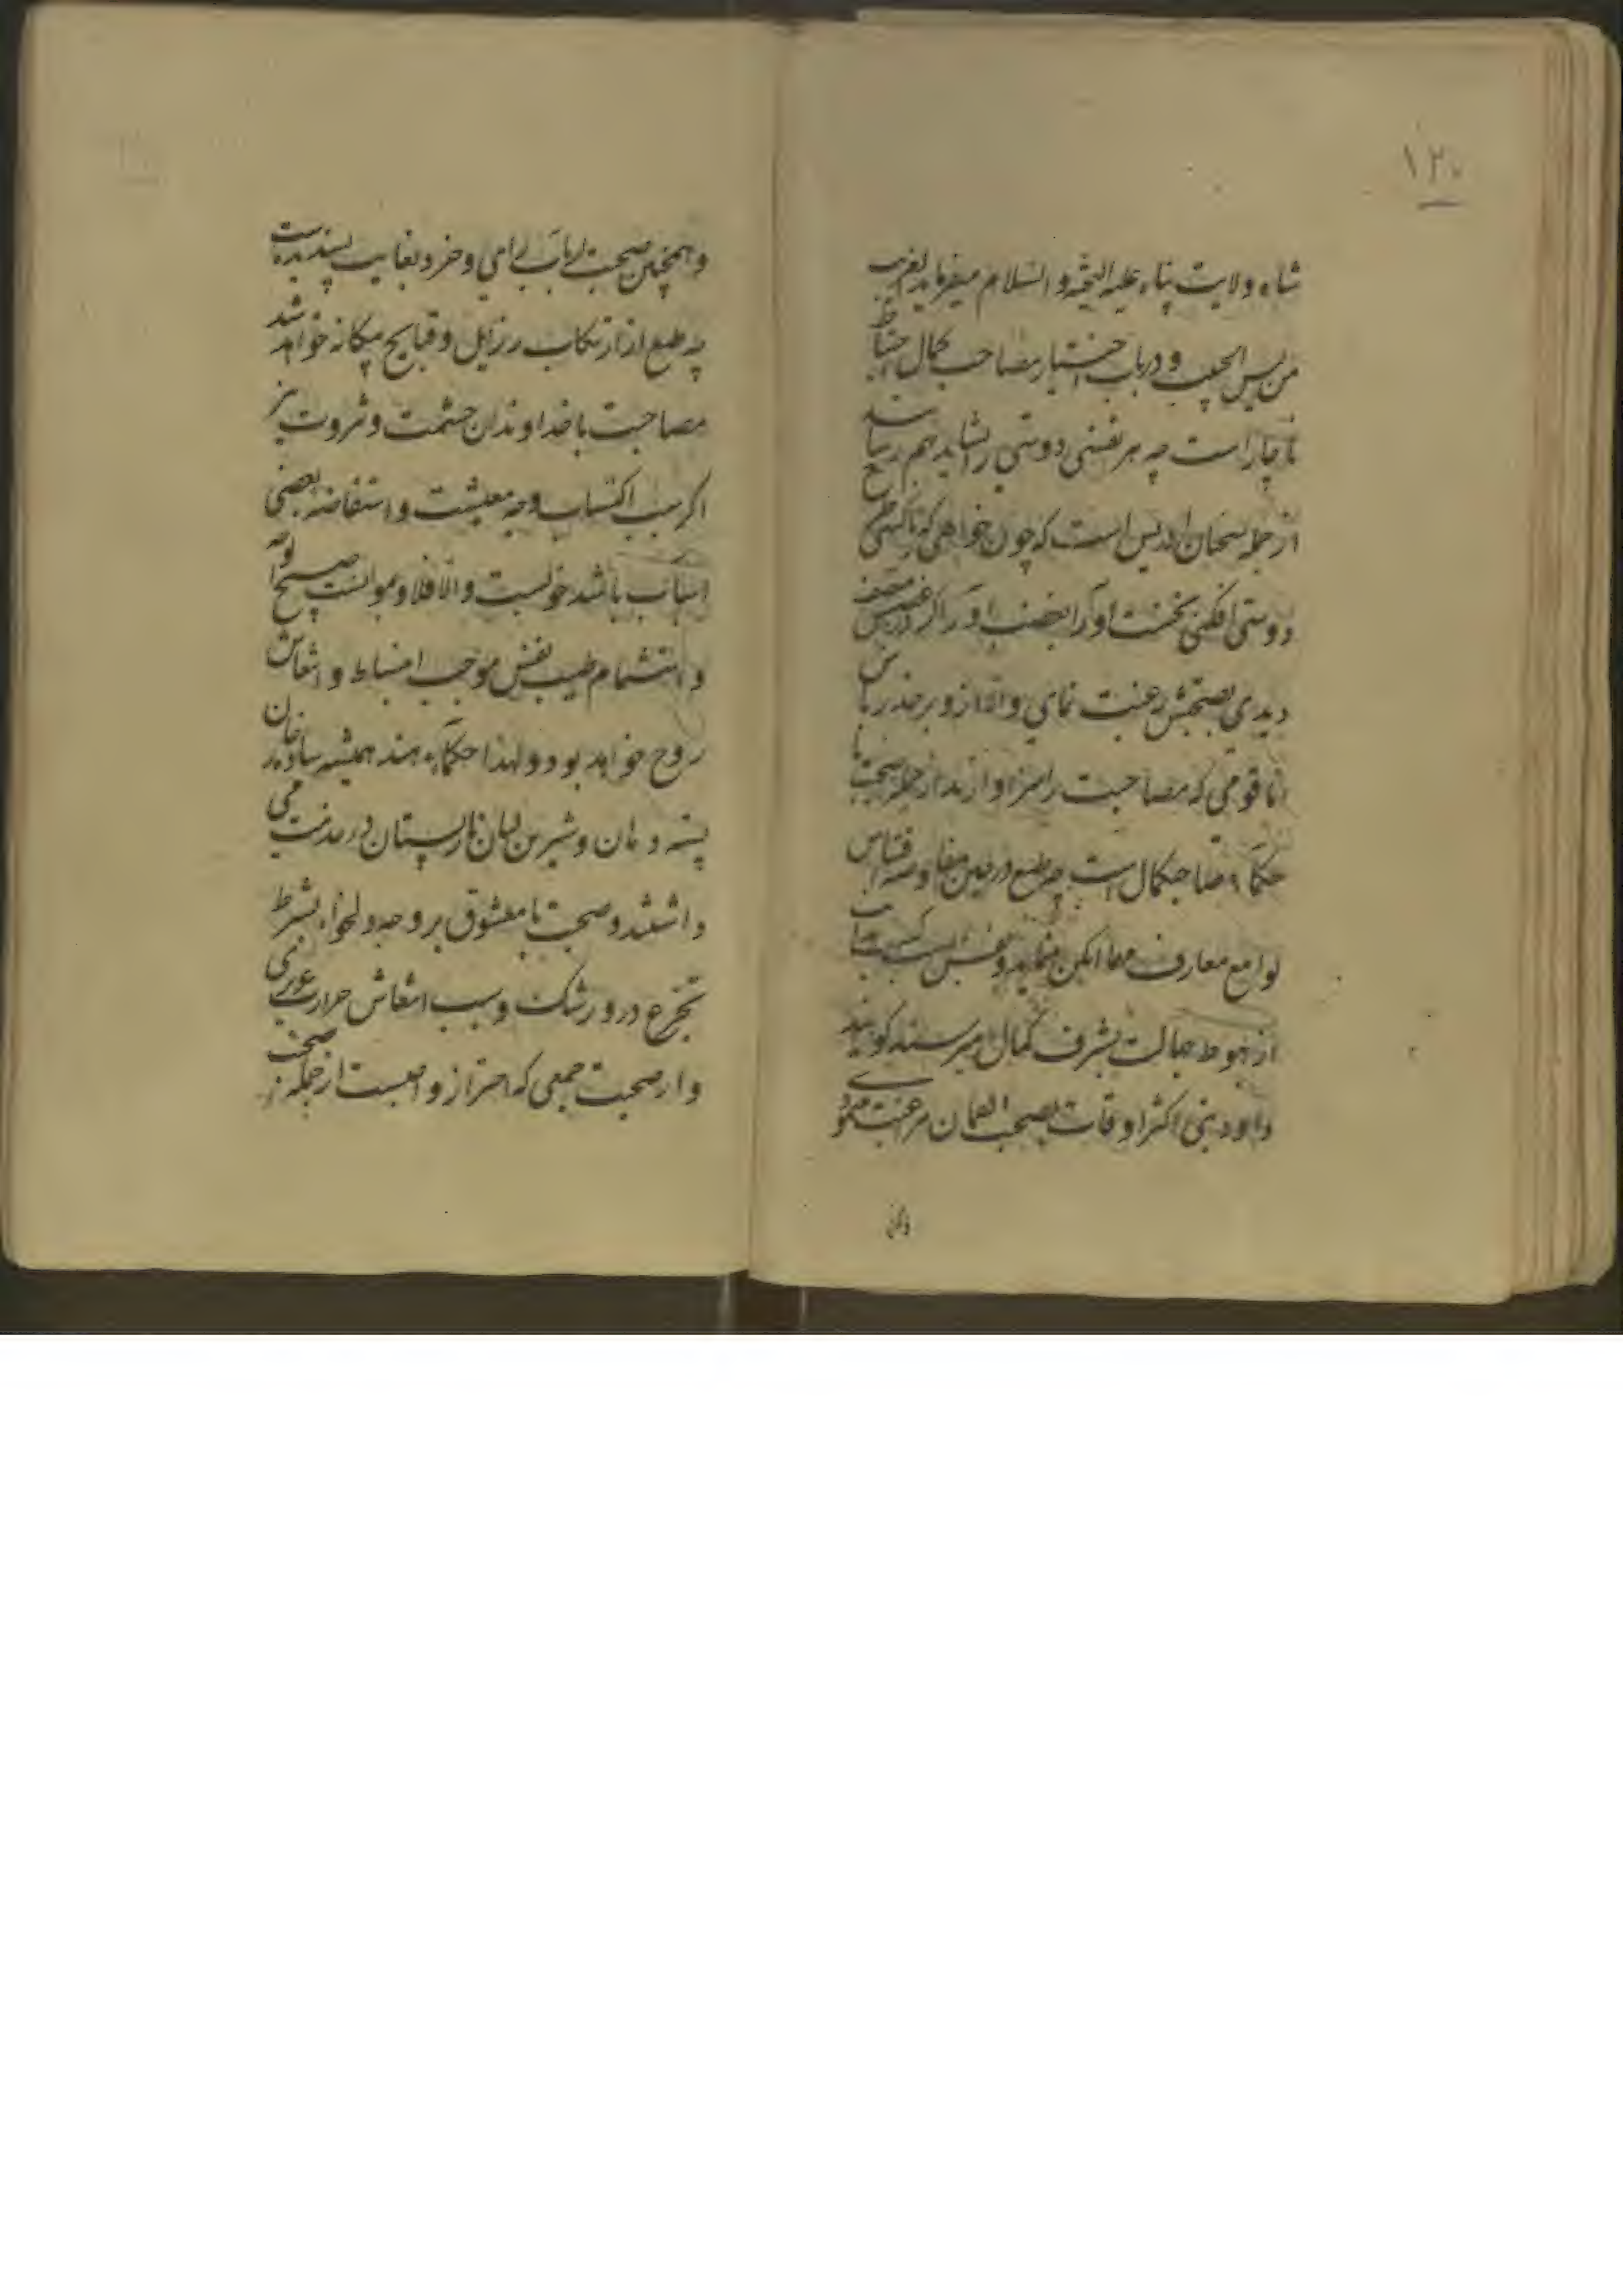 ۱۲۰
شاه ولایت پناه علیه التحیه و السلام میفرماید الغریب
من لیس له حبیب و در باب اختیار مصاحب کمال احتیاط
ناچار است چه هر نفسی دوستی را نشاید
از جمله سخنان ادریس است که چون خواهی که با کسی طرح
دوستی افکنی نخست او را بغضب آور اگر در غضبش منصف
دیدی بصحبتش رغبت نمای والا ازو بر حذر باش
اما قومی که مصاحبت را سزاوارند از جمله صحبت با
حکماء صاحبکمال است چه طبع در حین مفاوضه اقتباس
لوامع معارف مهما امکن مینماید و نفس بسبب اکتساب
از هبوط جهالت بشرف کمال میرسد گویند
داود نبی اکثر اوقات بصحبت لقمان رغبت نمودی
و همچنین صحبت ارباب رای و خرد بغایت پسندیده است
چه طبع از ارتکاب رزایل و قبایح بیگانه خواهد شد
مصاحبت با خداوندان حشمت و ثروت نیز
اگر سبب اکتساب وجه معیشت و استفاضه بعضی
اسباب باشد خوبست والا فلا و موانست صبیح الوجه
و انتشمام طیب نفس موجب انبساط و انتعاش
روح خواهد بود و لهذا حکماء هند همیشه ساده رخان
پسته دهان و شیرین لبان نارپستان در خدمت می
داشتند و صحبت با معشوق بر وجه دلخواه بشرط
تجرع درد رشک و سبب انتعاش حرارت غریزی
و از صحبت جمعی که احتراز واجبست از جمله صحبت